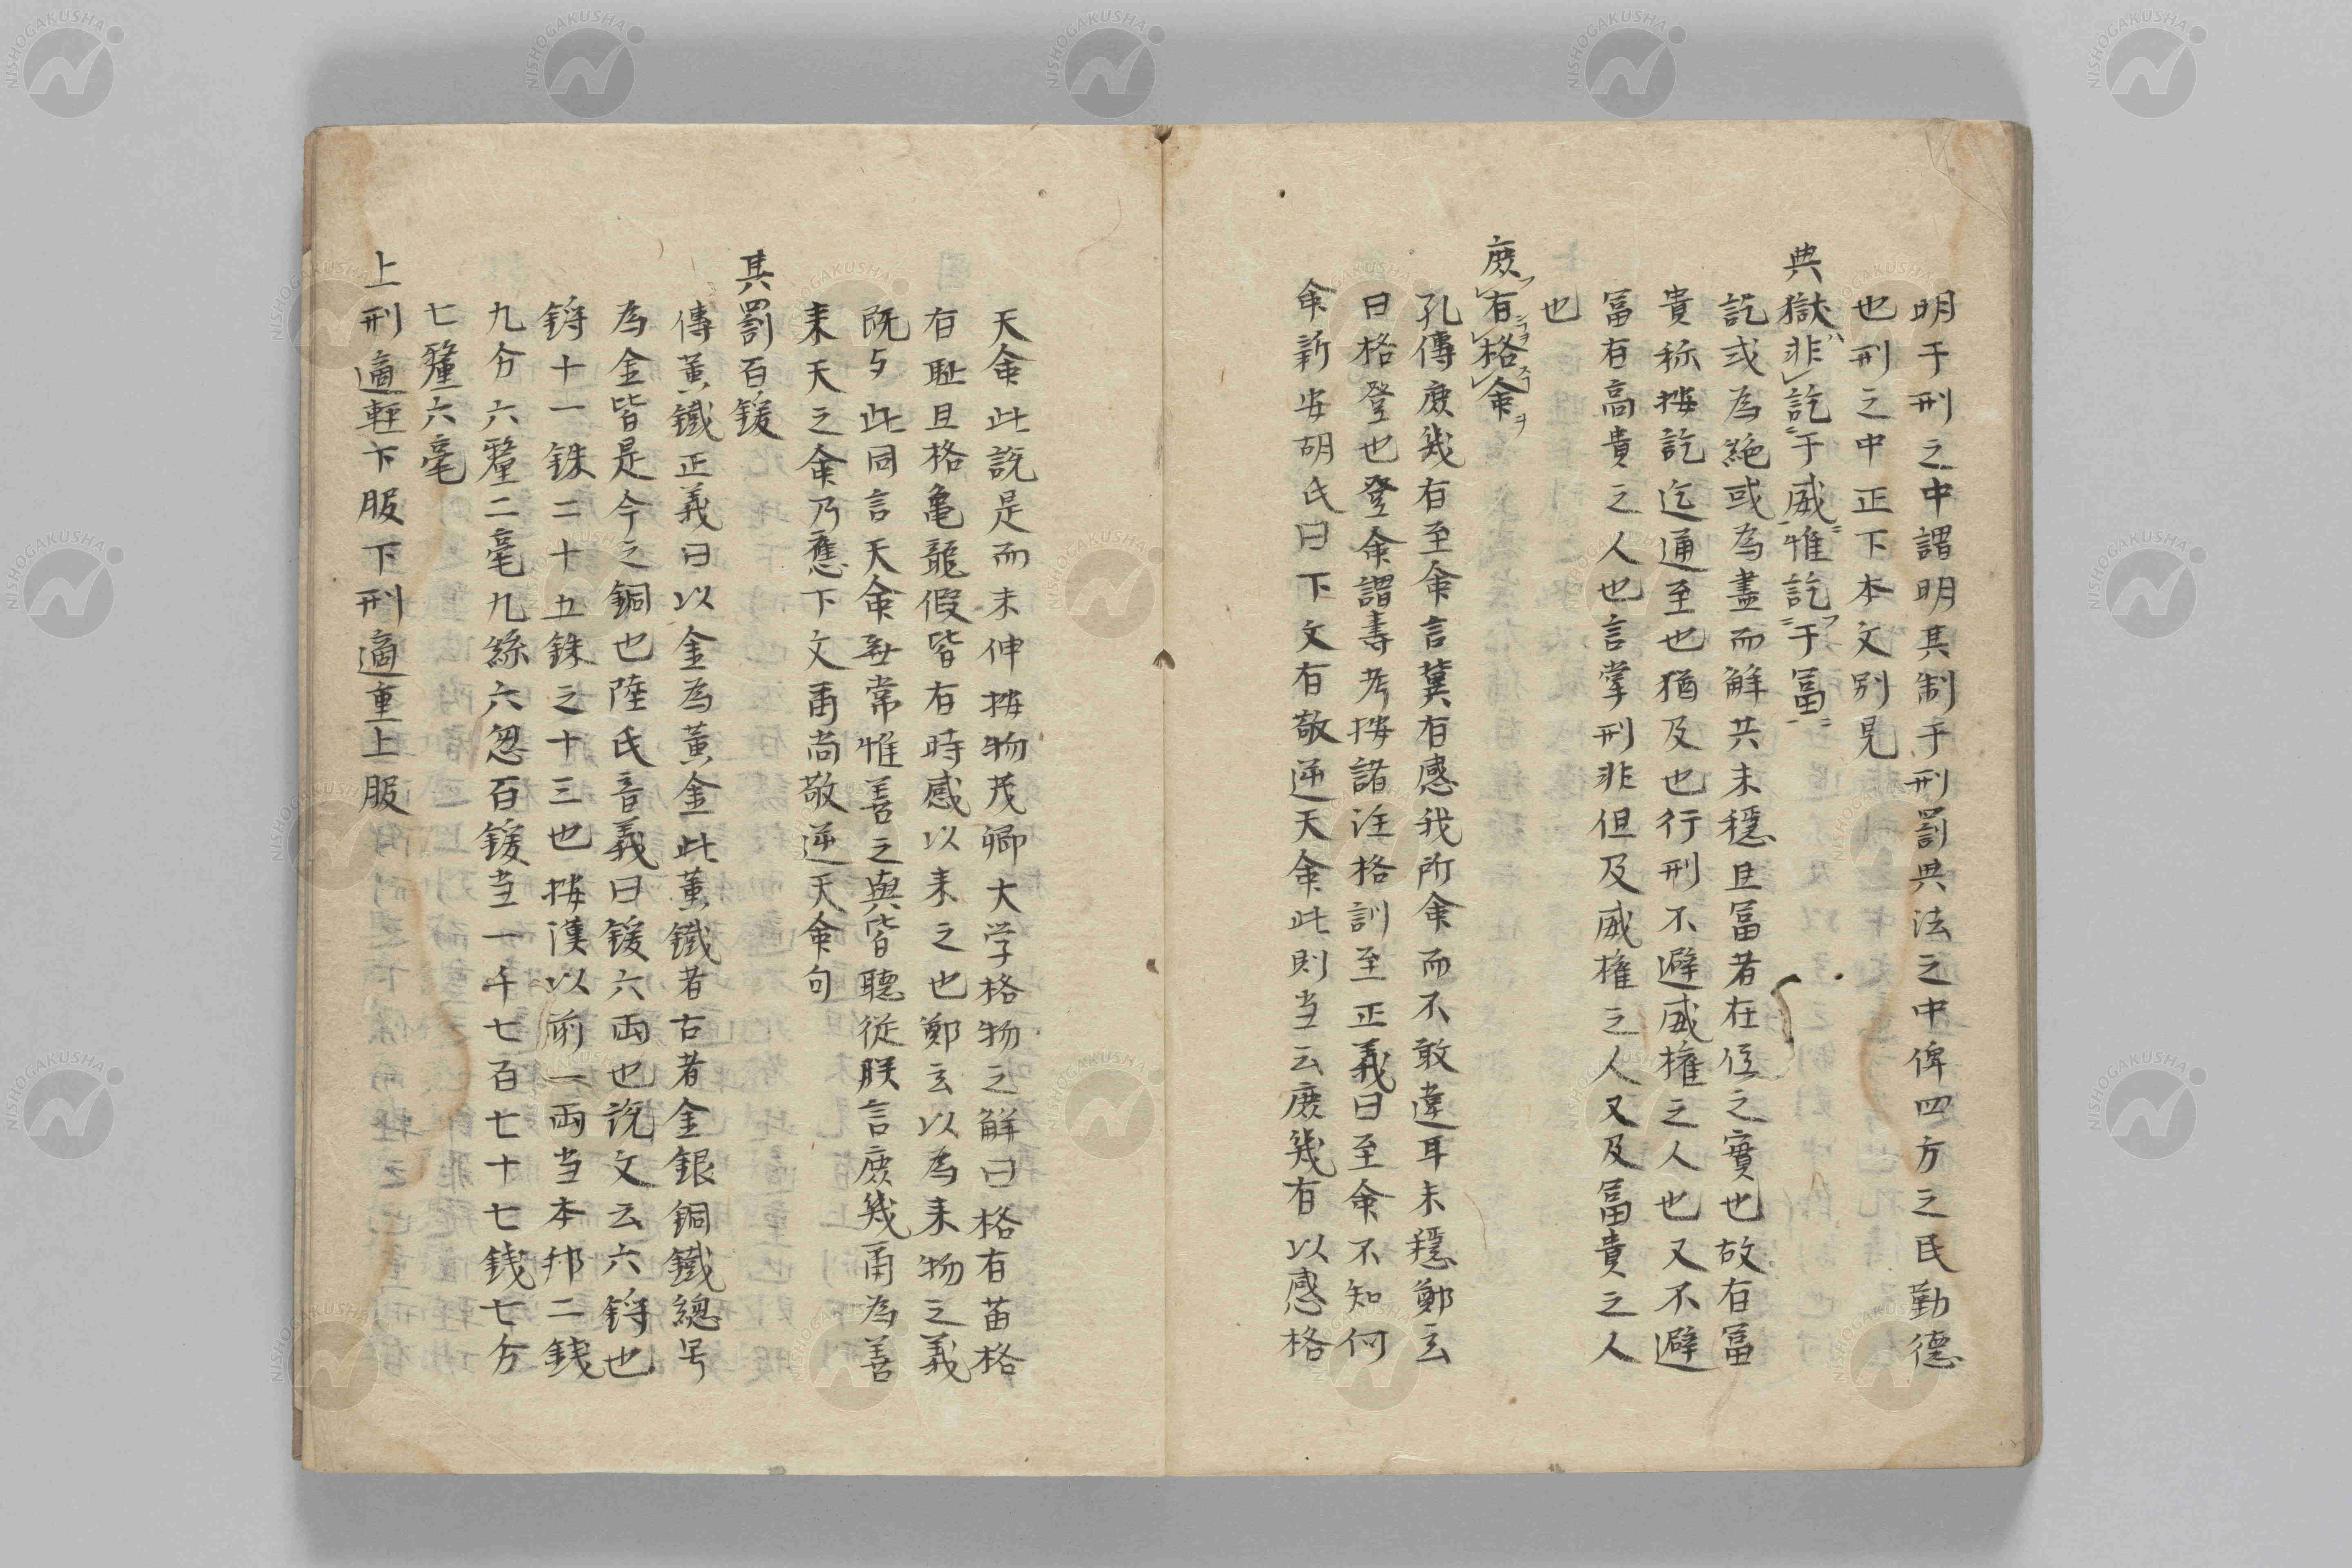 明于刑之中謂明其制于刑罰典法之中俾四方之民勤德
也刑之中正下本文別見
典獄非訖于威惟訖于冨
訖或為絶或為盡而解共未穏且冨者在位之實也故有冨
貴称按訖迄通至也猶及也行刑不避威権之人也又不避
冨有高貴之人也言掌刑非但及威権之人又及冨貴之人
也
庶有格命
孔傳庶幾有至命言冀有感我所命而不敢違耳未穏鄭云
曰格登也登命謂壽考按諸注格訓至正義曰至命不知何
命新安胡氏曰下文有敬逆天命此則当云庶幾有以感格
天命此説是而未伸按物茂卿大学格物之解曰格有苗格
有耻且格亀龍假皆有時感以来之也鄭玄以為来物之義
既与此同言天命無常惟善之與皆聽從朕言庶幾甬為善
来天之命乃應下文甬尚敬逆天命句
其罰百鍰
傳黄鐵正義曰以金為黄金此黄鐵者古者金銀銅鐵總号
為金皆是今之銅也陸氏音義曰鍰六両也説文云六鋝也
鋝十一銖二十五銖之十三也按漢以前一両当本邦二錢
九分六釐二毫九絲六忽百鍰当一千七百七十七錢七分
七釐六毫
上刑適軽下服下刑適重上服